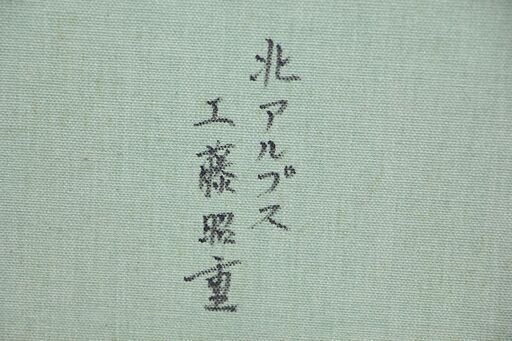 北アルプス
工藤照重